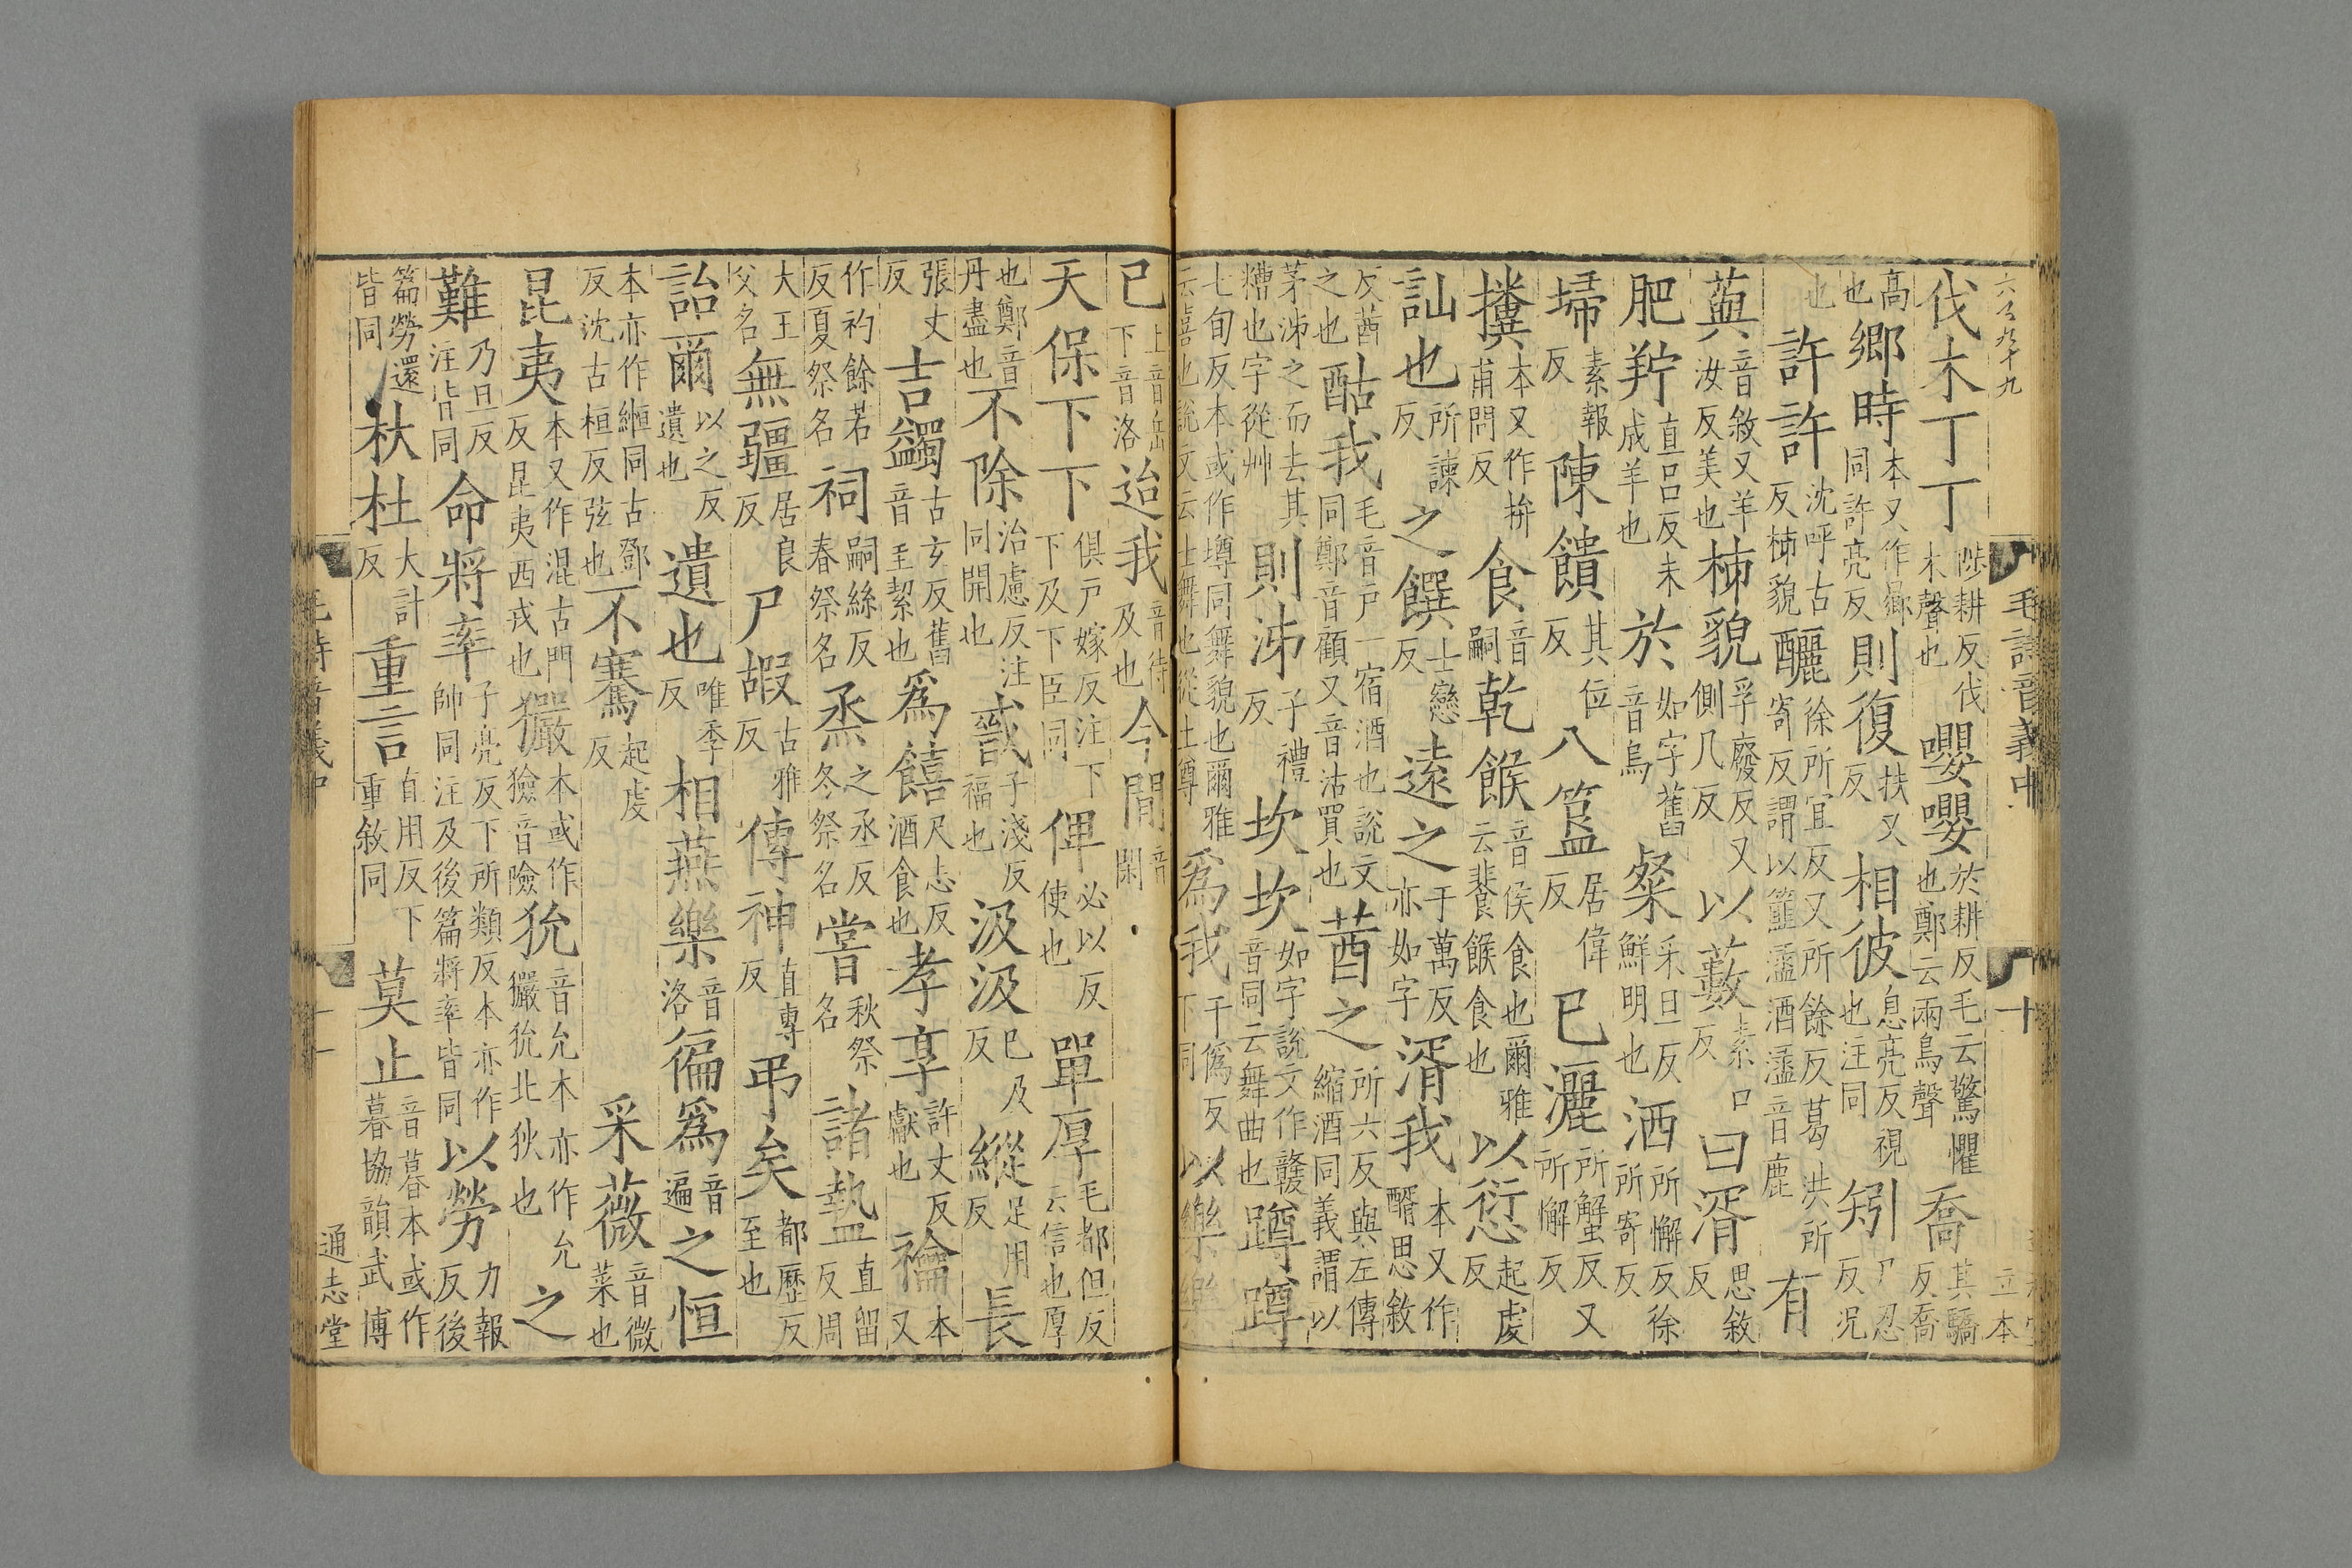 伐木丁丁陟耕反伐木聲也嚶嚶於耕反毛云驚懼也鄭云兩鳥聲喬其驕反喬
高也鄉時本又作嚮同許亮反則復扶又反相彼息亮反視也注同矧尸忍反況
也許許沈呼古反柹貌釃徐所宜反又所餘反葛洪所寄反謂以筐盪酒盪音鹿有
藇音敘又羊汝反美也柹貌孚廢反又側几反以藪素口反曰胥思敘反
肥羜直呂反未成羊也於如字舊音烏粲采旦反鮮明也洒所懈反徐所寄反
埽素報反陳饋其位反八簋居偉反已灑所蟹反又所懈反
攩本又作拚甫問反食音嗣乾餱音侯食也爾雅云餥餱食也以愆起虔反
訕也所諫反之饌士戀反遠之于萬反亦如字胥我本又作醑思敘
反茜之也酤我毛音戶一宿酒也說文同鄭音顧又音沽買也茜之所六反與左傳縮酒同義謂以
茅泲之而去其糟也字從艸則泲子禮反坎坎如字說文作竷音同云舞曲也蹲蹲
七旬反本或作墫同舞貌也爾雅云喜也說文云士舞也從士尊為我于偽反下同以樂樂
已上音岳下音洛迨我音待及也今閒音閑
天保下下俱戶嫁反注下下及下臣同俾必以反使也單厚毛都但反云信也厚
也鄭音丹盡也不除治慮反注同開也戩子淺反福也汲汲已及反縱足用反長
張丈反吉蠲古玄反舊音圭絜也為饎尺志反酒食也孝享許丈反獻也禴本又
作礿餘若反夏祭名祠嗣絲反春祭名烝之丞反冬祭名嘗秋祭名諸盩直留反周
大王父名無疆居良反尸嘏古雅反傳神直專反弔矣都歷反至也
詒爾以之反遺也遺也唯季反相燕樂音洛徧為音遍之恒
本亦作緪同古鄧反沈古桓反弦也不騫起虔反采薇音微菜也
昆夷本又作混古門反昆夷西戎也玁本或作獫音險狁音允本亦作允玁狁北狄也之
難乃旦反注皆同命將率子亮反下所類反本亦作帥同注及後篇將率皆同以勞力報反後
篇勞還皆同杕杜大計反重言直用反下重敘同莫止音暮本或作暮協韻武博
毛詩音義中
十
通志堂